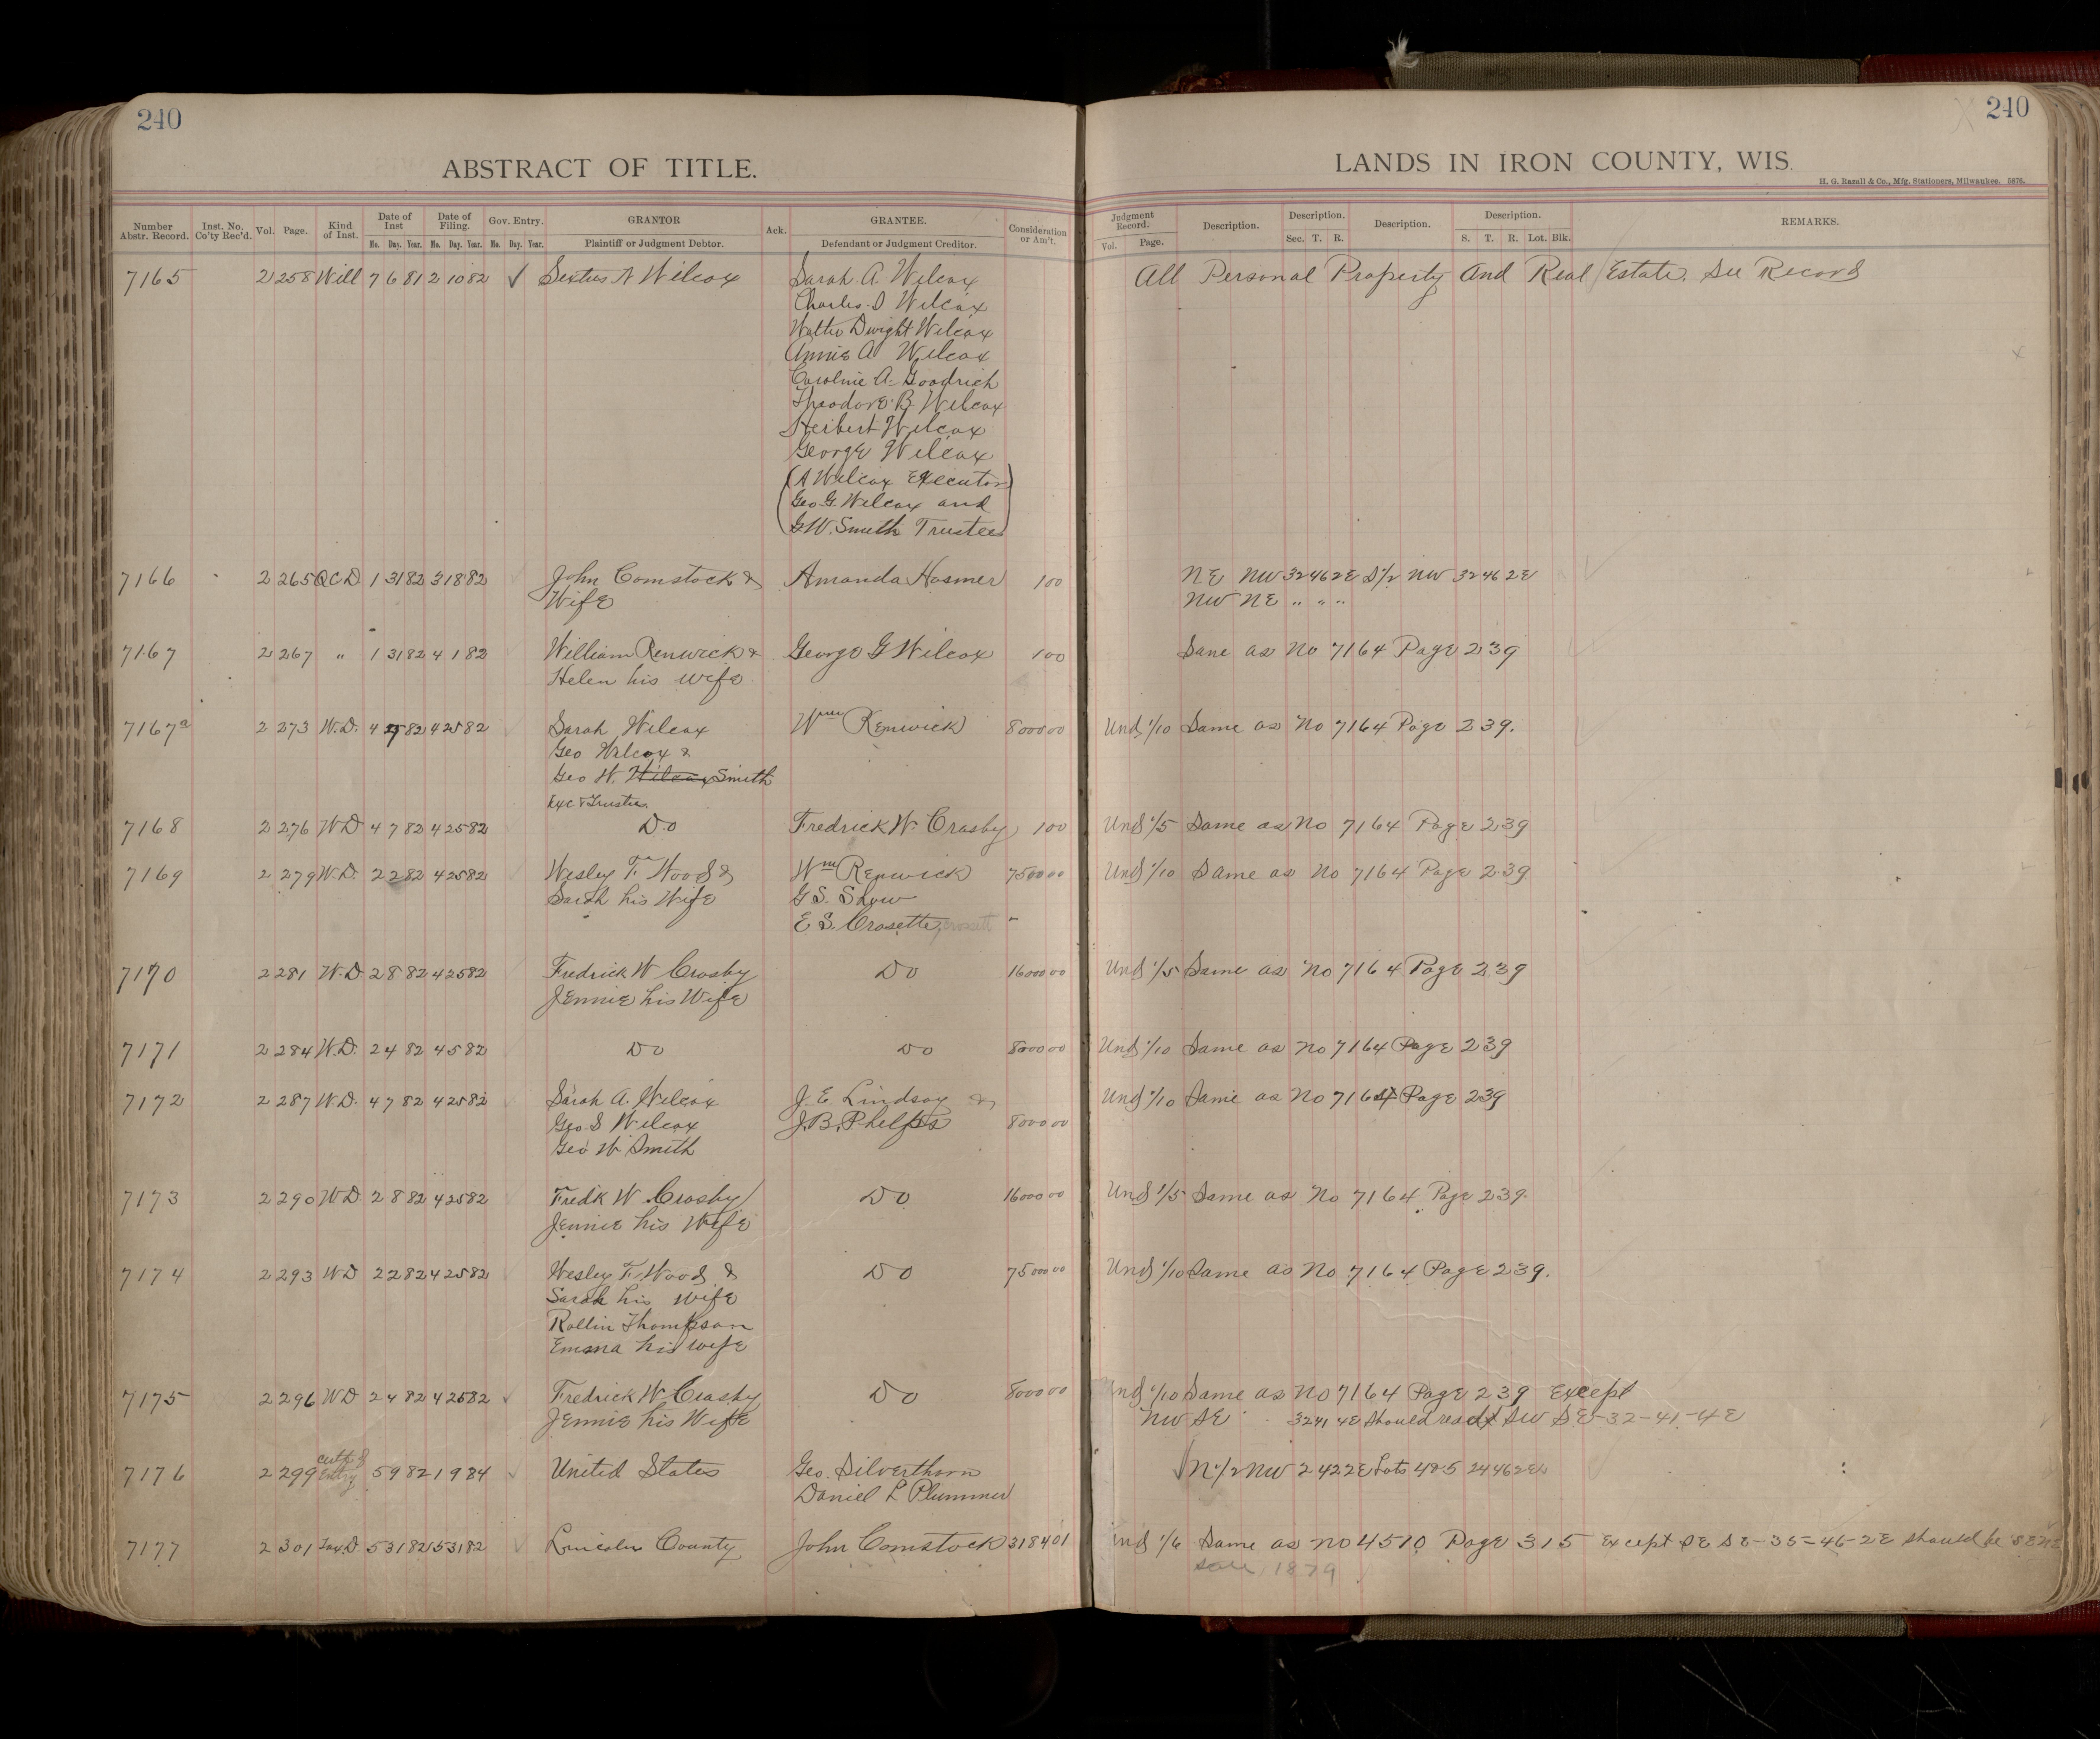 240
240
ABSTRACT OF TITLE.
LANDS IN IRON COUNTY, WIS.
H. G. Razall & Co., Mfg. Stationers, Milwaukee. 5876.
Number Abstr. Record. Inst. No. Co'ty Rec'd. Vol. Page. Kind of Inst. Date of Inst Date of Filing. Gov. Entry. GRANTOR Ack. GRANTEE. Consideration or Am't. Judgment Record. Description. Description. Description. Description. REMARKS.
Mo. Day. Year. Mo. Day. Year. Mo. Day. Year. Plaintiff or Judgment Debtor. Defendant or Judgment Creditor. Vol. Page. Sec. T. R. S. T. R. Lot. Blk.
7165 2 258 Will 7 6 81 2 10 82 ✓ Sextus N Wilcox Sarah A. Wilcox All Personal Property And Real Estate. See Record
Charles D Wilcox
Walter Dwight Wilcox
Annie A Wilcox
Caroline A. Goodrich
Theodore B. Wilcox
Herbert Wilcox
George Wilcox
(A Wilcox Executor
Geo G. Wilcox and
G W. Smith Trustees)
7166 2 265 QCD 1 31 82 3 18 82 John Comstock & Amanda Hosmer 1 00 NE NW 32 46 2E S 1/2 NW 32 46 2E
Wife NW NE " " "
7167 2 267 " 1 31 82 4 1 82 William Renwick & George G Wilcox 1 00 Same as No 7164 Page 239
Helen his wife
7167a 2 273 W.D. 4 7 82 4 25 82 Sarah Wilcox Wm Renwick 8000 00 Und 1/10 Same as No 7164 Page 239.
Geo Wilcox &
Geo W. Wilcox Smith
Exc & Trustees
7168 2 276 WD 4 7 82 4 25 82 Do Fredrick W. Crosby 1 00 Und 1/5 Same as No 7164 Page 239
7169 2 279 W.D. 2 2 82 4 25 82 Wesley F. Wood & Wm Renwick 7500 00 Und 1/10 Same as No 7164 Page 239
Sarah his Wife G S. Shaw
E S. Crosette, Crossett
7170 2 281 W.D 2 8 82 4 25 82 Fredrick W Crosby Do 16000 00 Und 1/5 Same as No 7164 Page 239
Jennie his Wife
7171 2 284 W.D. 2 4 82 4 5 82 Do Do 8000 00 Und 1/10 Same as No 7164 Page 239
7172 2 287 W.D. 4 7 82 4 25 82 Sarah A. Wilcox J. E. Lindsay & Und 1/10 Same as No 7164 Page 239
Geo. S Wilcox J. B. Phelps 8000 00
Geo W. Smith
7173 2 290 WD 2 8 82 4 25 82 Fredk W Crosby Do 16000 00 Und 1/5 Same as No 7164 Page 239.
Jennie his Wife
7174 2 293 WD 2 2 82 4 25 82 Wesley F. Wood & Do 7500 00 Und 1/10 Same as No 7164 Page 239.
Sarah his wife
Rollin Thompson
Emma his wife
7175 2 296 WD 2 4 82 4 25 82 ✓ Fredrick W Crosby Do 8000 00 Und 1/10 Same as No 7164 Page 239 Except
Jennie his Wife NW SE 32 41 4E Should read SW SE-32-41-4E
7176 2 299 Certf of Entry 5 9 82 1 9 84 ✓ United States Geo. Silverthorn ✓ N 1/2 NW 2 42 2E Lots 4&5 24 46 2E
Daniel L Plummer
7177 2 301 Tax D 5 31 82 5 31 82 ✓ Lincoln County John Comstock 3184 01 Und 1/6 Same as no 4510 Page 315 Except SE SE-35-46-2E should be SE NE
Sale 1879